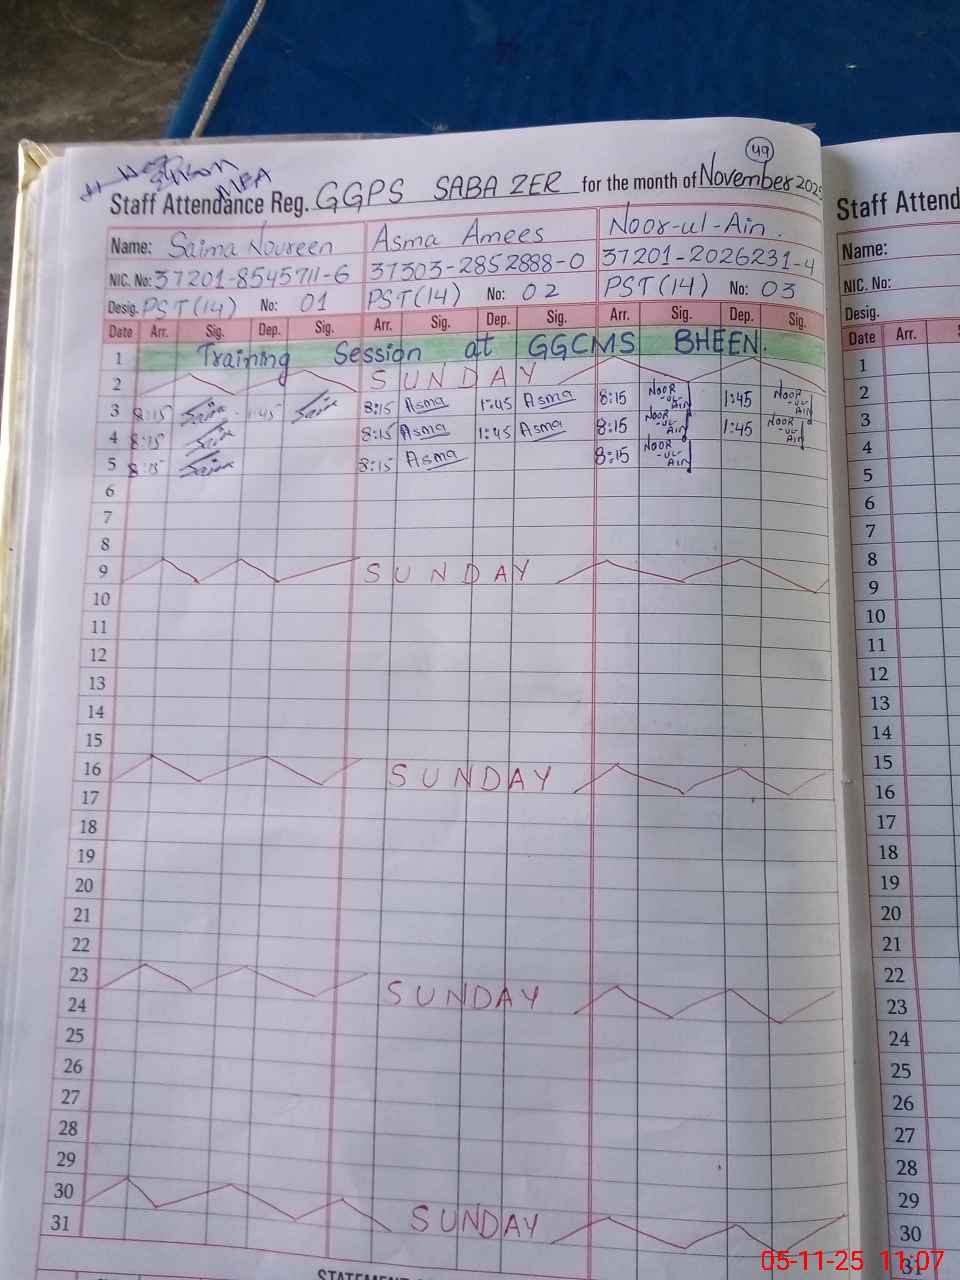 49
MEA
Staff Attendance Reg. GGPS SABA ZER for the month of November 2025
Name: Saima Noureen Asma Amees Noor-ul-Ain.
NIC. No: 37201-8545711-6 37303-2852888-0 37201-2026231-4
Desig. PST(14) No: 01 PST(14) No: 02 PST(14) No: 03
Date Arr. Sig. Dep. Sig. Arr. Sig. Dep. Sig. Arr. Sig. Dep. Sig.
1 Training Session at GGCMS BHEEN.
2 SUNDAY
3 8:15 Saima 1:45 Saima 8:15 Asma 1:45 Asma 8:15 NOOR-UL-Ain 1:45 NOOR-UL-Ain
4 8:15 Saima 8:15 Asma 1:45 Asma 8:15 NOOR-UL-Ain 1:45 NOOR-UL-Ain
5 8:15 Saima 8:15 Asma 8:15 NOOR-UL-Ain
6
7
8
9 SUNDAY
10
11
12
13
14
15
16 SUNDAY
17
18
19
20
21
22
23 SUNDAY
24
25
26
27
28
29
30 SUNDAY
31
STATEMENT
Staff Attend
Name:
NIC. No:
Desig.
Date Arr.
1
2
3
4
5
6
7
8
9
10
11
12
13
14
15
16
17
18
19
20
21
22
23
24
25
26
27
28
29
30
31
05-11-25 11:07